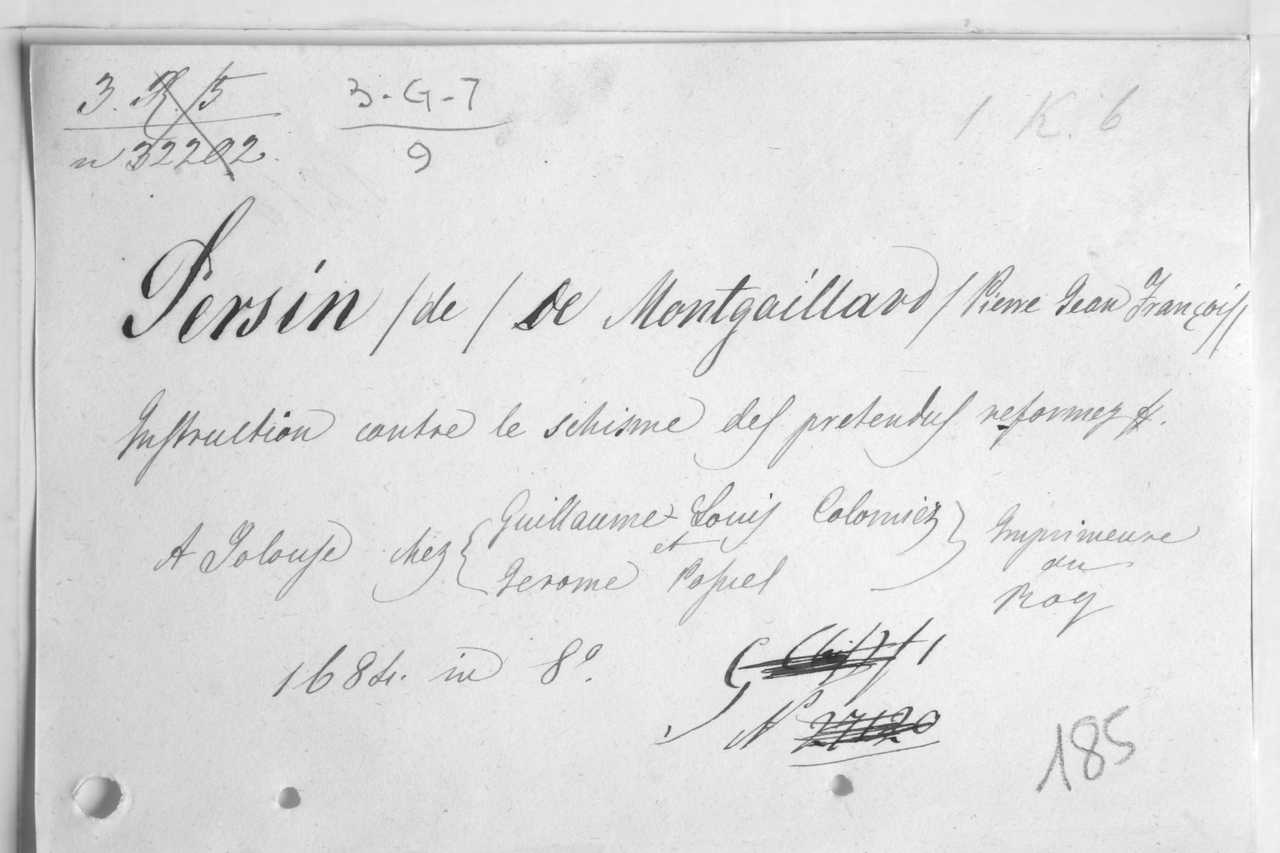 3. R. 15 3-G-7 1 K. 6
n 32202. 9
Persin /de/ De Montgaillard /Pierre Jean François/
Instruction contre le schisme des pretendus reformez &.
A Tolouse chez { Guillaume-Louis Colomiez } Imprimeure
et du
Jerome Posuel Roy
1684. in 8º.
G
Nº 27120
185